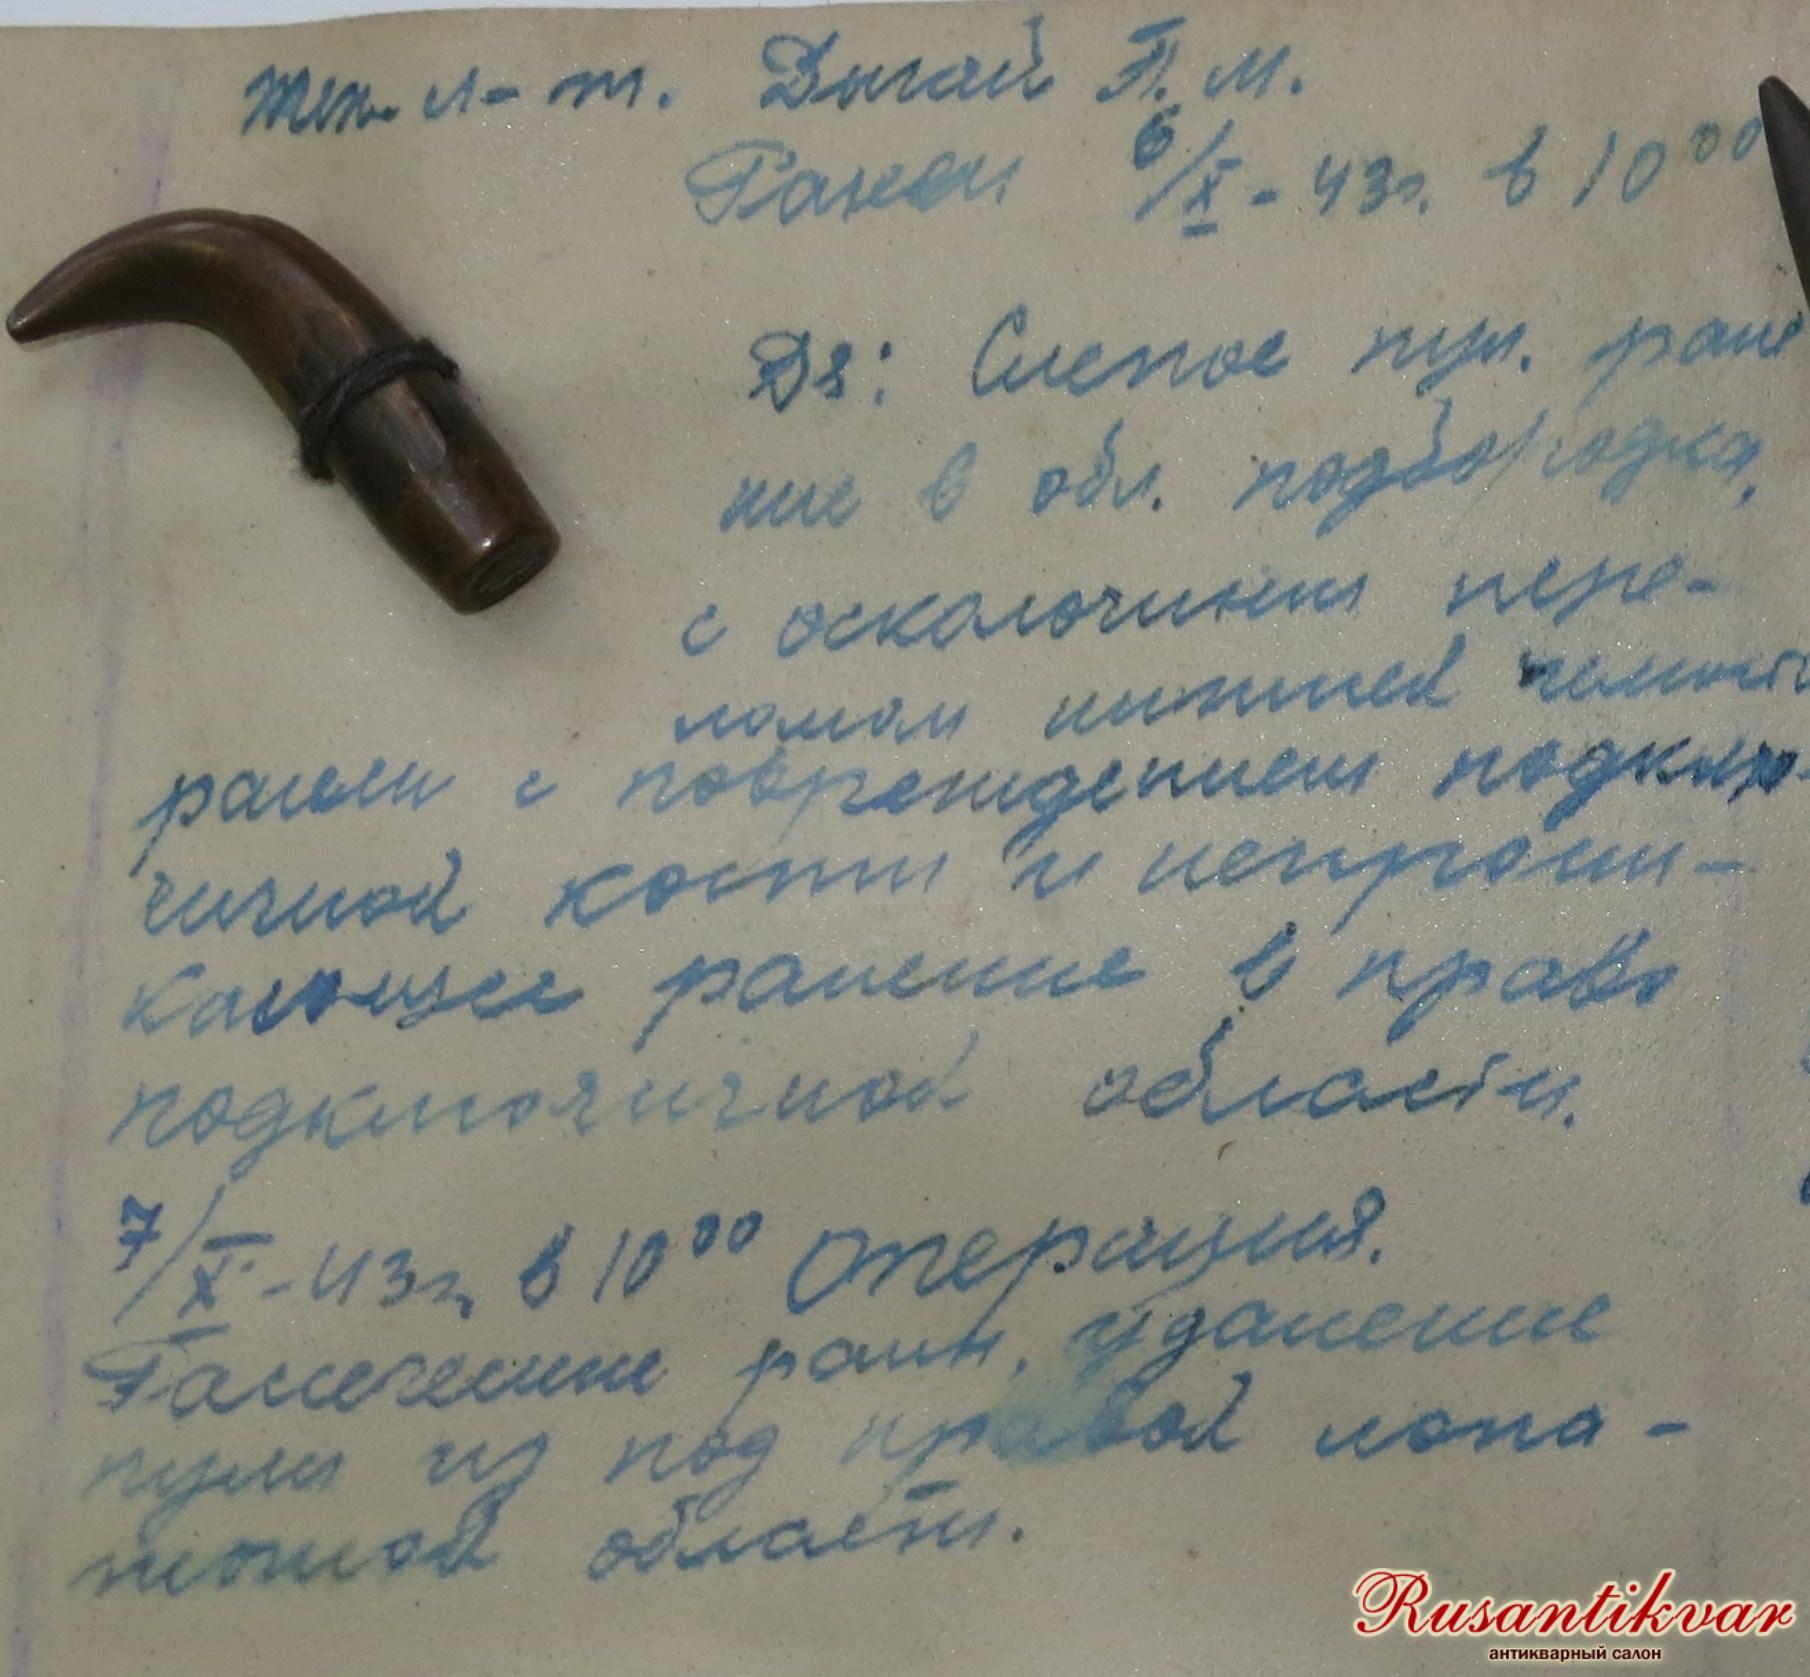 тех. л-т. Дыгай П. М.
Ранен 6/X - 43г. в 10 00
Ds: Слепое пул. ране
ние в обл. подбородка,
с оскалочным пере-
ломом нижней челюсти
ранен с повреждением подклю-
чичной кости и непрони-
кающее ранение в право
подключичной области.
7/X - 43г. в 10 00 Операция.
Рассечение ран, удаление
пули из под правой лопа-
точной области.
Rusantikvar
антикварный салон